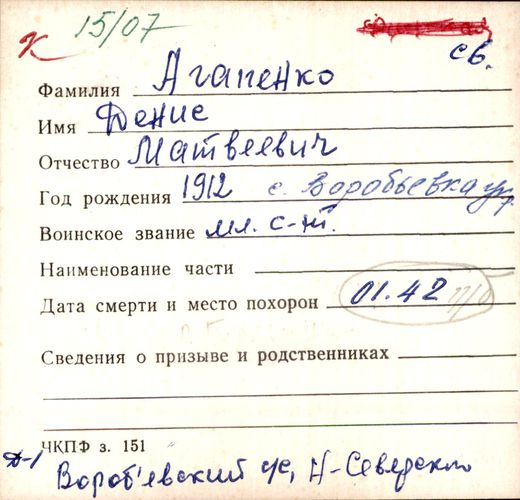 К 15/07
св.
Фамилия Агапенко
Имя Денис
Отчество Матвеевич
Год рождения 1912 с. Воробьевка укр.
Воинское звание мл. с-т.
Наименование части
Дата смерти и место похорон 01.42 п/б
Сведения о призыве и родственниках
ЧКПФ з. 151
Д-1
Вороб'евский с/с, Н-Северского